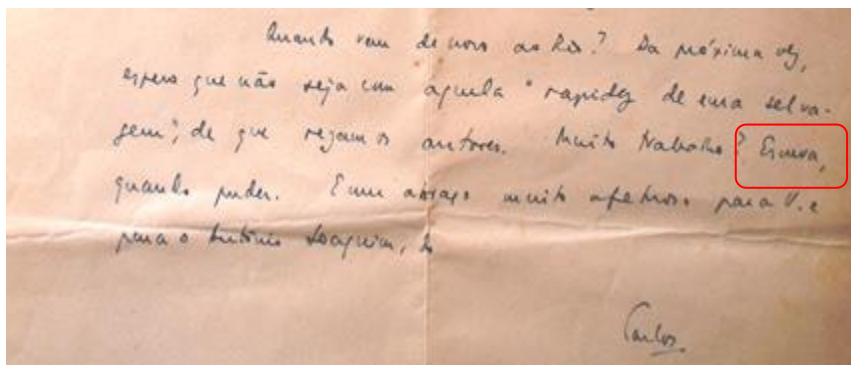 Quando vem de novo ao Rio? Da próxima vez,
espero que não seja com aquela "rapidez de ema selva-
gem", de que rezam os autores. Muito trabalho? Escreva,
quando puder. E um abraço muito afetuoso para V. e
para o Antônio Joaquim, do
Carlos